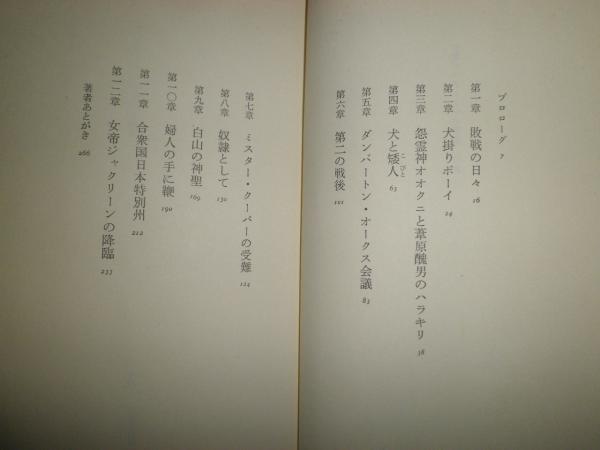 プロローグ 7
第一章 敗戦の日々 16
第二章 犬掛りボーイ 24
第三章 怨霊神オオクニと葦原醜男のハラキリ 38
第四章 犬と矮人 63
こびと
第五章 ダンバートン・オークス会議 83
第六章 第二の戦後 101
第七章 ミスター・クーパーの受難 124
第八章 奴隷として 150
第九章 白山の神聖 169
第一〇章 婦人の手に鞭 190
第一一章 合衆国日本特別州 212
第一二章 女帝ジャクリーンの降臨 233
著者あとがき 266